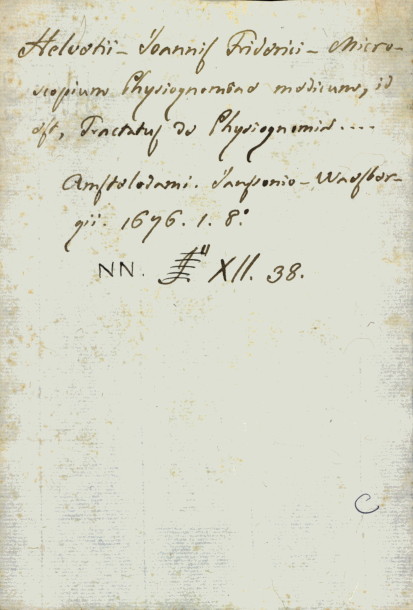 Helvetii - Joannis Friderici - Micro-
scopium Physiognomiae medicum, id
est, Tractatus de Physiognomia....
Amstelodami. Jansonio-Waesber-
gii. 1676. 1. 8.º
NN. XII. 38.
C